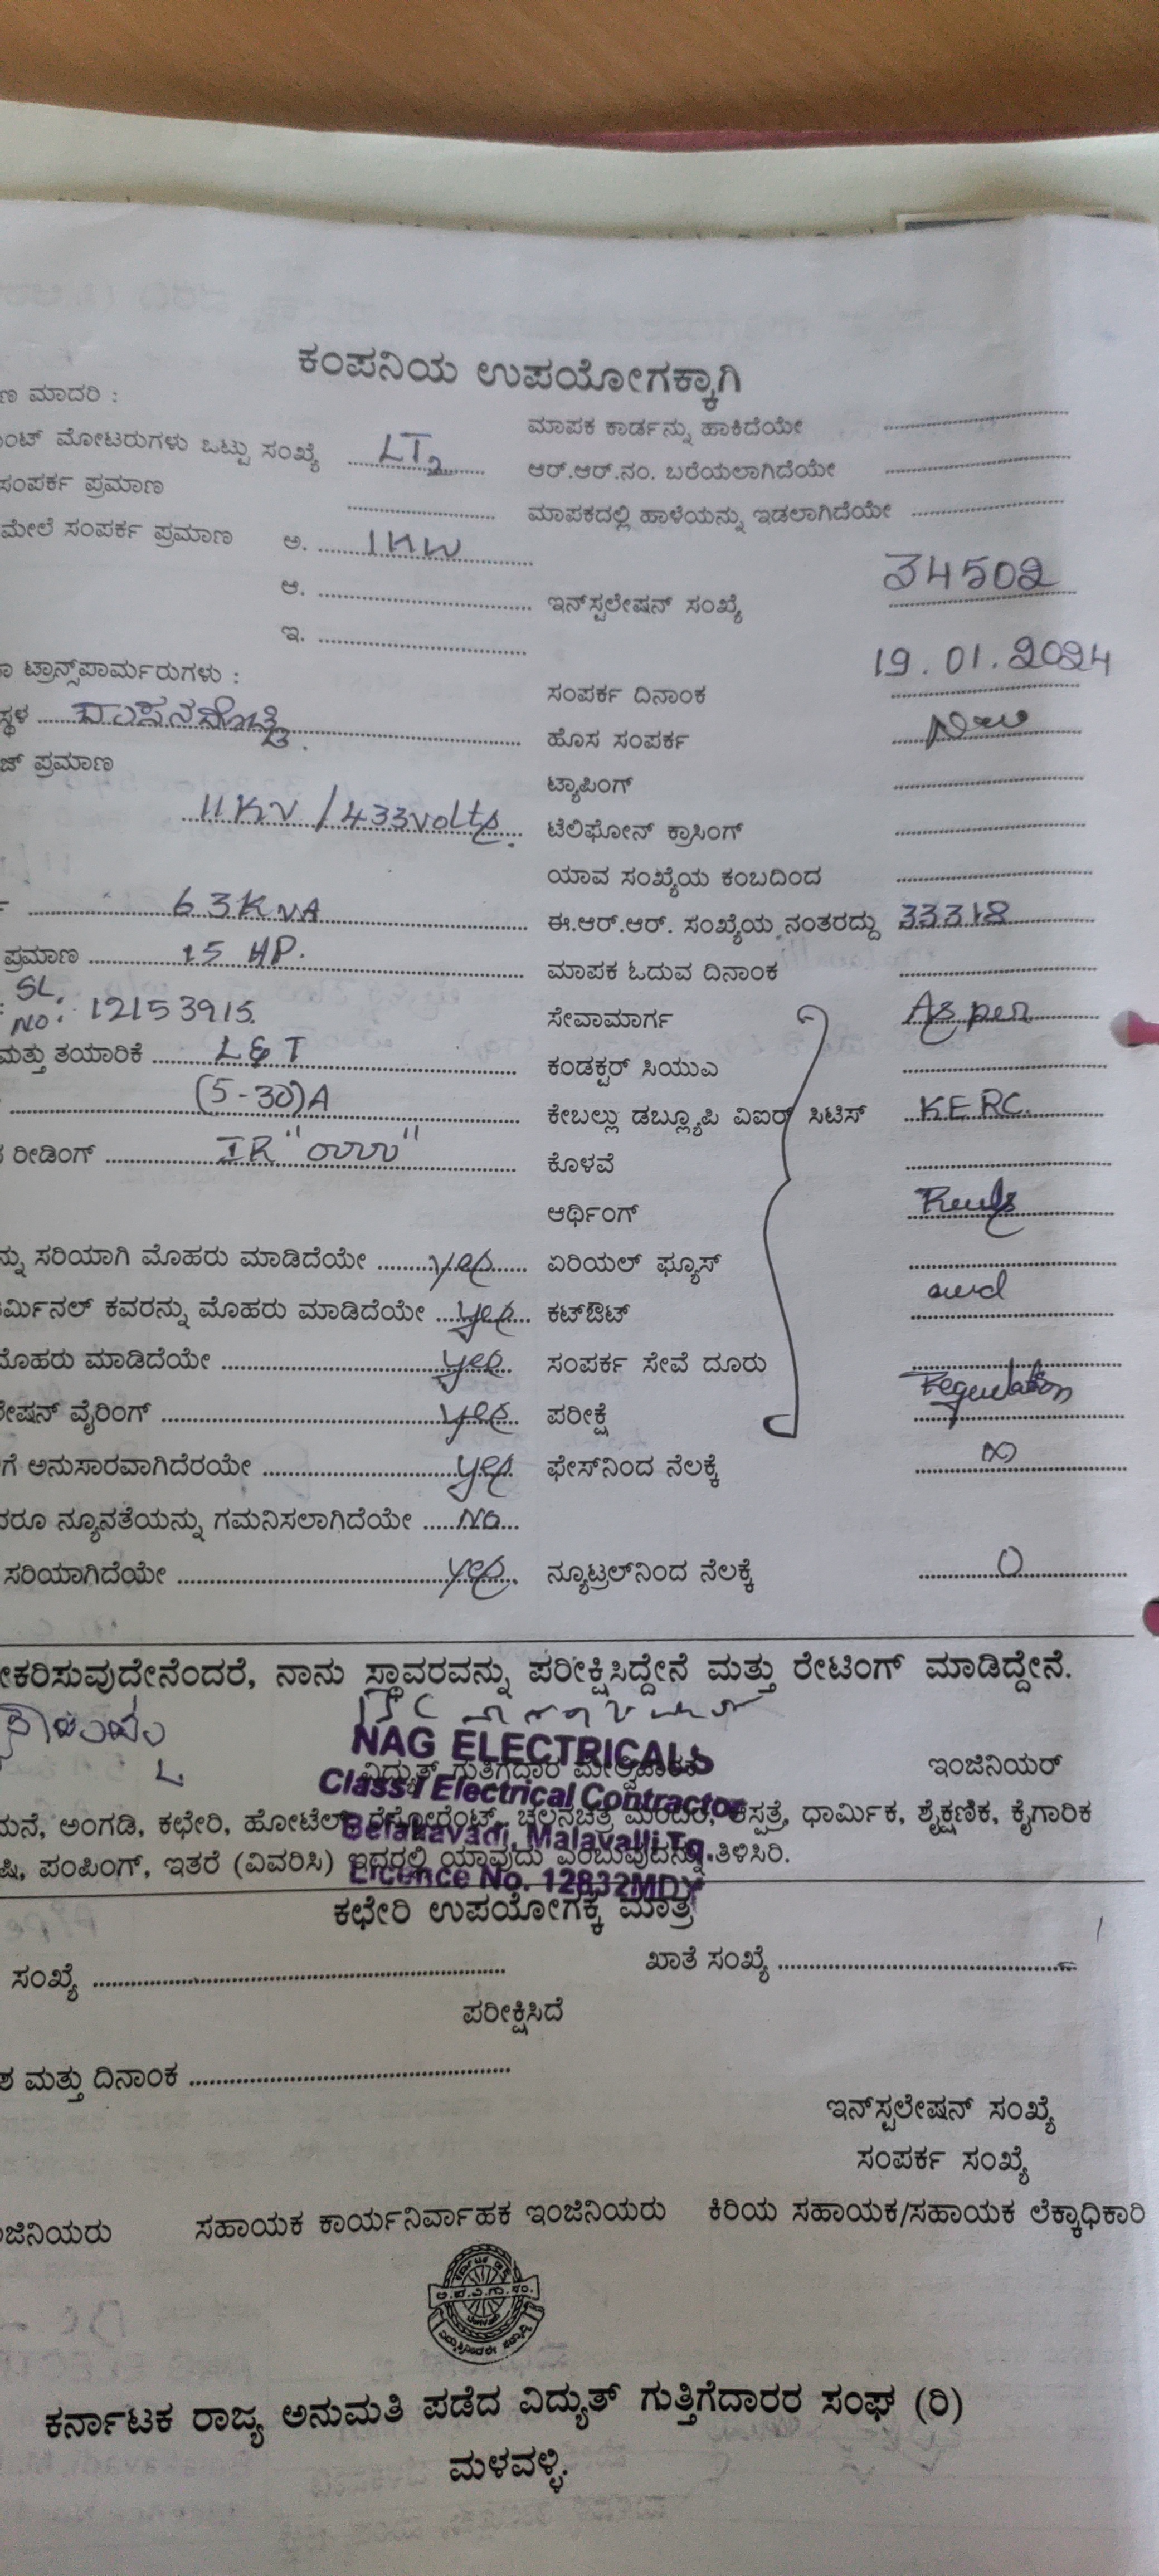 ಕಂಪನಿಯ ಉಪಯೋಗಕ್ಕಾಗಿ
ಣ ಮಾದರಿ :
ಮಾಪಕ ಕಾರ್ಡನ್ನು ಹಾಕಿದೆಯೇ
ಂಟ್ ಮೋಟರುಗಳು ಒಟ್ಟು ಸಂಖ್ಯೆ LT2 ಆರ್.ಆರ್.ನಂ. ಬರೆಯಲಾಗಿದೆಯೇ
ಸಂಪರ್ಕ ಪ್ರಮಾಣ ಮಾಪಕದಲ್ಲಿ ಹಾಳೆಯನ್ನು ಇಡಲಾಗಿದೆಯೇ
ಮೇಲೆ ಸಂಪರ್ಕ ಪ್ರಮಾಣ ಅ. 1KW
ಆ. ಇನ್‌ಸ್ಟಲೇಷನ್ ಸಂಖ್ಯೆ 34502
ಇ.
ಟ್ರಾನ್ಸ್‌ಪಾರ್ಮರುಗಳು : ಸಂಪರ್ಕ ದಿನಾಂಕ 19.01.2024
ಸ್ಥಳ ಹೊಸ ಸಂಪರ್ಕ New
ಜ್ ಪ್ರಮಾಣ ಟ್ಯಾಪಿಂಗ್
11KV/433volts. ಟೆಲಿಫೋನ್ ಕ್ರಾಸಿಂಗ್
ಯಾವ ಸಂಖ್ಯೆಯ ಕಂಬದಿಂದ
63KVA ಈ.ಆರ್.ಆರ್. ಸಂಖ್ಯೆಯ ನಂತರದ್ದು 33318
ಪ್ರಮಾಣ 15 HP. ಮಾಪಕ ಓದುವ ದಿನಾಂಕ
SL. NO: 12153915. ಸೇವಾಮಾರ್ಗ As per
ಮತ್ತು ತಯಾರಿಕೆ L&T ಕಂಡಕ್ಟರ್ ಸಿಯುಎ
(5-30)A ಕೇಬಲ್ಲು ಡಬ್ಲ್ಯೂಪಿ ವಿಐರ್ ಸಿಟಿಸ್ KERC.
ರೀಡಿಂಗ್ IR ಕೊಳವೆ
ಆರ್ಥಿಂಗ್ Reuls
ನ್ನು ಸರಿಯಾಗಿ ಮೊಹರು ಮಾಡಿದೆಯೇ yes ಏರಿಯಲ್ ಫ್ಯೂಸ್
ರ್ಮಿನಲ್ ಕವರನ್ನು ಮೊಹರು ಮಾಡಿದೆಯೇ yes ಕಟ್‌ಔಟ್ and
ಮೊಹರು ಮಾಡಿದೆಯೇ yes ಸಂಪರ್ಕ ಸೇವೆ ದೂರು
ಲೇಷನ್ ವೈರಿಂಗ್ yes ಪರೀಕ್ಷೆ Regulation
ಗೆ ಅನುಸಾರವಾಗಿದೆರಯೇ yes ಫೇಸ್‌ನಿಂದ ನೆಲಕ್ಕೆ ∞
ದರೂ ನ್ಯೂನತೆಯನ್ನು ಗಮನಿಸಲಾಗಿದೆಯೇ No
ಸರಿಯಾಗಿದೆಯೇ yes. ನ್ಯೂಟ್ರಲ್‌ನಿಂದ ನೆಲಕ್ಕೆ 0
ೀಕರಿಸುವುದೇನೆಂದರೆ, ನಾನು ಸ್ಥಾವರವನ್ನು ಪರೀಕ್ಷಿಸಿದ್ದೇನೆ ಮತ್ತು ರೇಟಿಂಗ್ ಮಾಡಿದ್ದೇನೆ.
NAG ELECTRICALS
ವಿದ್ಯುತ್ ಗುತ್ತಿಗೆದಾರ ಮೇಲ್ವಿಚಾರಕ ಇಂಜಿನಿಯರ್
Class I Electrical Contractor
ಮನೆ, ಅಂಗಡಿ, ಕಛೇರಿ, ಹೋಟೆಲ್, ರೆಸ್ಟೋರೆಂಟ್, ಚಲನಚಿತ್ರ ಮಂದಿರ, ಆಸ್ಪತ್ರೆ, ಧಾರ್ಮಿಕ, ಶೈಕ್ಷಣಿಕ, ಕೈಗಾರಿಕ
Belakavadi, Malavalli Tq.
ಷಿ, ಪಂಪಿಂಗ್, ಇತರೆ (ವಿವರಿಸಿ) ಇದರಲ್ಲಿ ಯಾವುದು ಎಂಬುವುದನ್ನು ತಿಳಿಸಿರಿ.
Licence No. 12832MDY
ಕಛೇರಿ ಉಪಯೋಗಕ್ಕೆ ಮಾತ್ರ
ಸಂಖ್ಯೆ ಖಾತೆ ಸಂಖ್ಯೆ
ಪರೀಕ್ಷಿಸಿದೆ
ಶ ಮತ್ತು ದಿನಾಂಕ
ಇನ್‌ಸ್ಟಲೇಷನ್ ಸಂಖ್ಯೆ
ಸಂಪರ್ಕ ಸಂಖ್ಯೆ
ಂಜಿನಿಯರು ಸಹಾಯಕ ಕಾರ್ಯನಿರ್ವಾಹಕ ಇಂಜಿನಿಯರು ಕಿರಿಯ ಸಹಾಯಕ/ಸಹಾಯಕ ಲೆಕ್ಕಾಧಿಕಾರಿ
ಕರ್ನಾಟಕ ರಾಜ್ಯ ಅನುಮತಿ ಪಡೆದ ವಿದ್ಯುತ್ ಗುತ್ತಿಗೆದಾರರ ಸಂಘ (ರಿ)
ಮಳವಳ್ಳಿ.